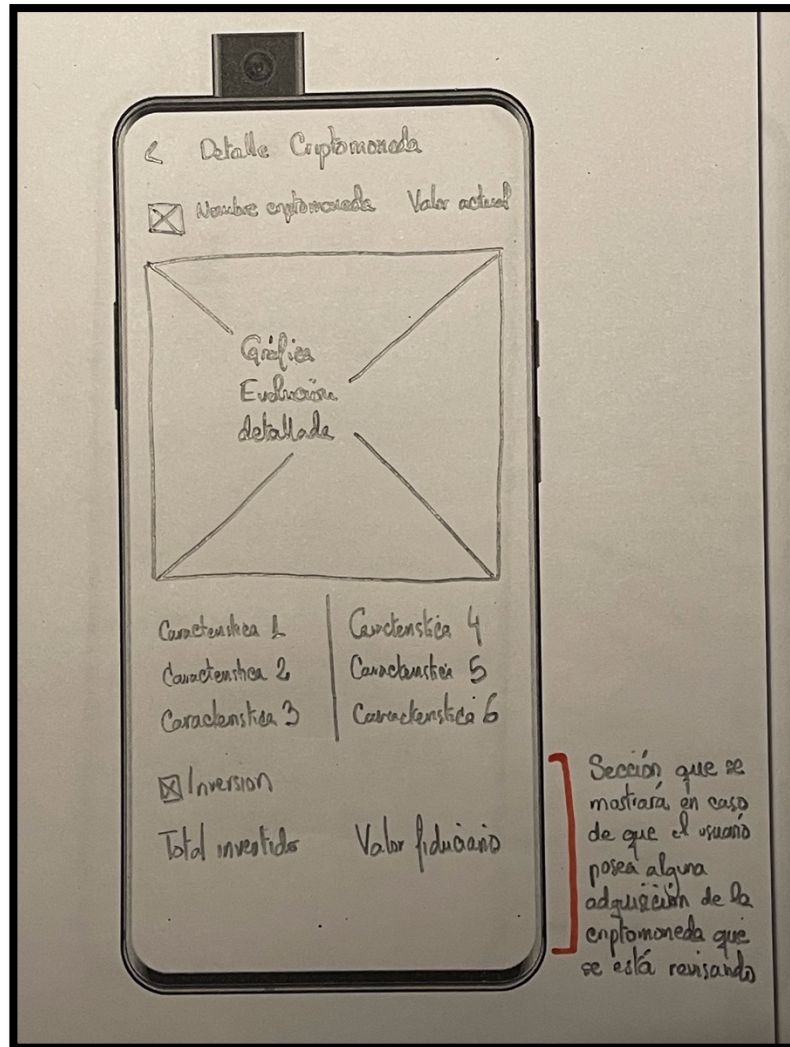 < Detalle Criptomoneda
Nombre criptomoneda Valor actual
Gráfica
Evolución
detallada
Característica 1
Característica 2
Característica 3
Característica 4
Característica 5
Característica 6
Inversion
Total invertido Valor fiduciario
Sección que se
mostrará en caso
de que el usuario
posea alguna
adquisición de la
criptomoneda que
se está revisando